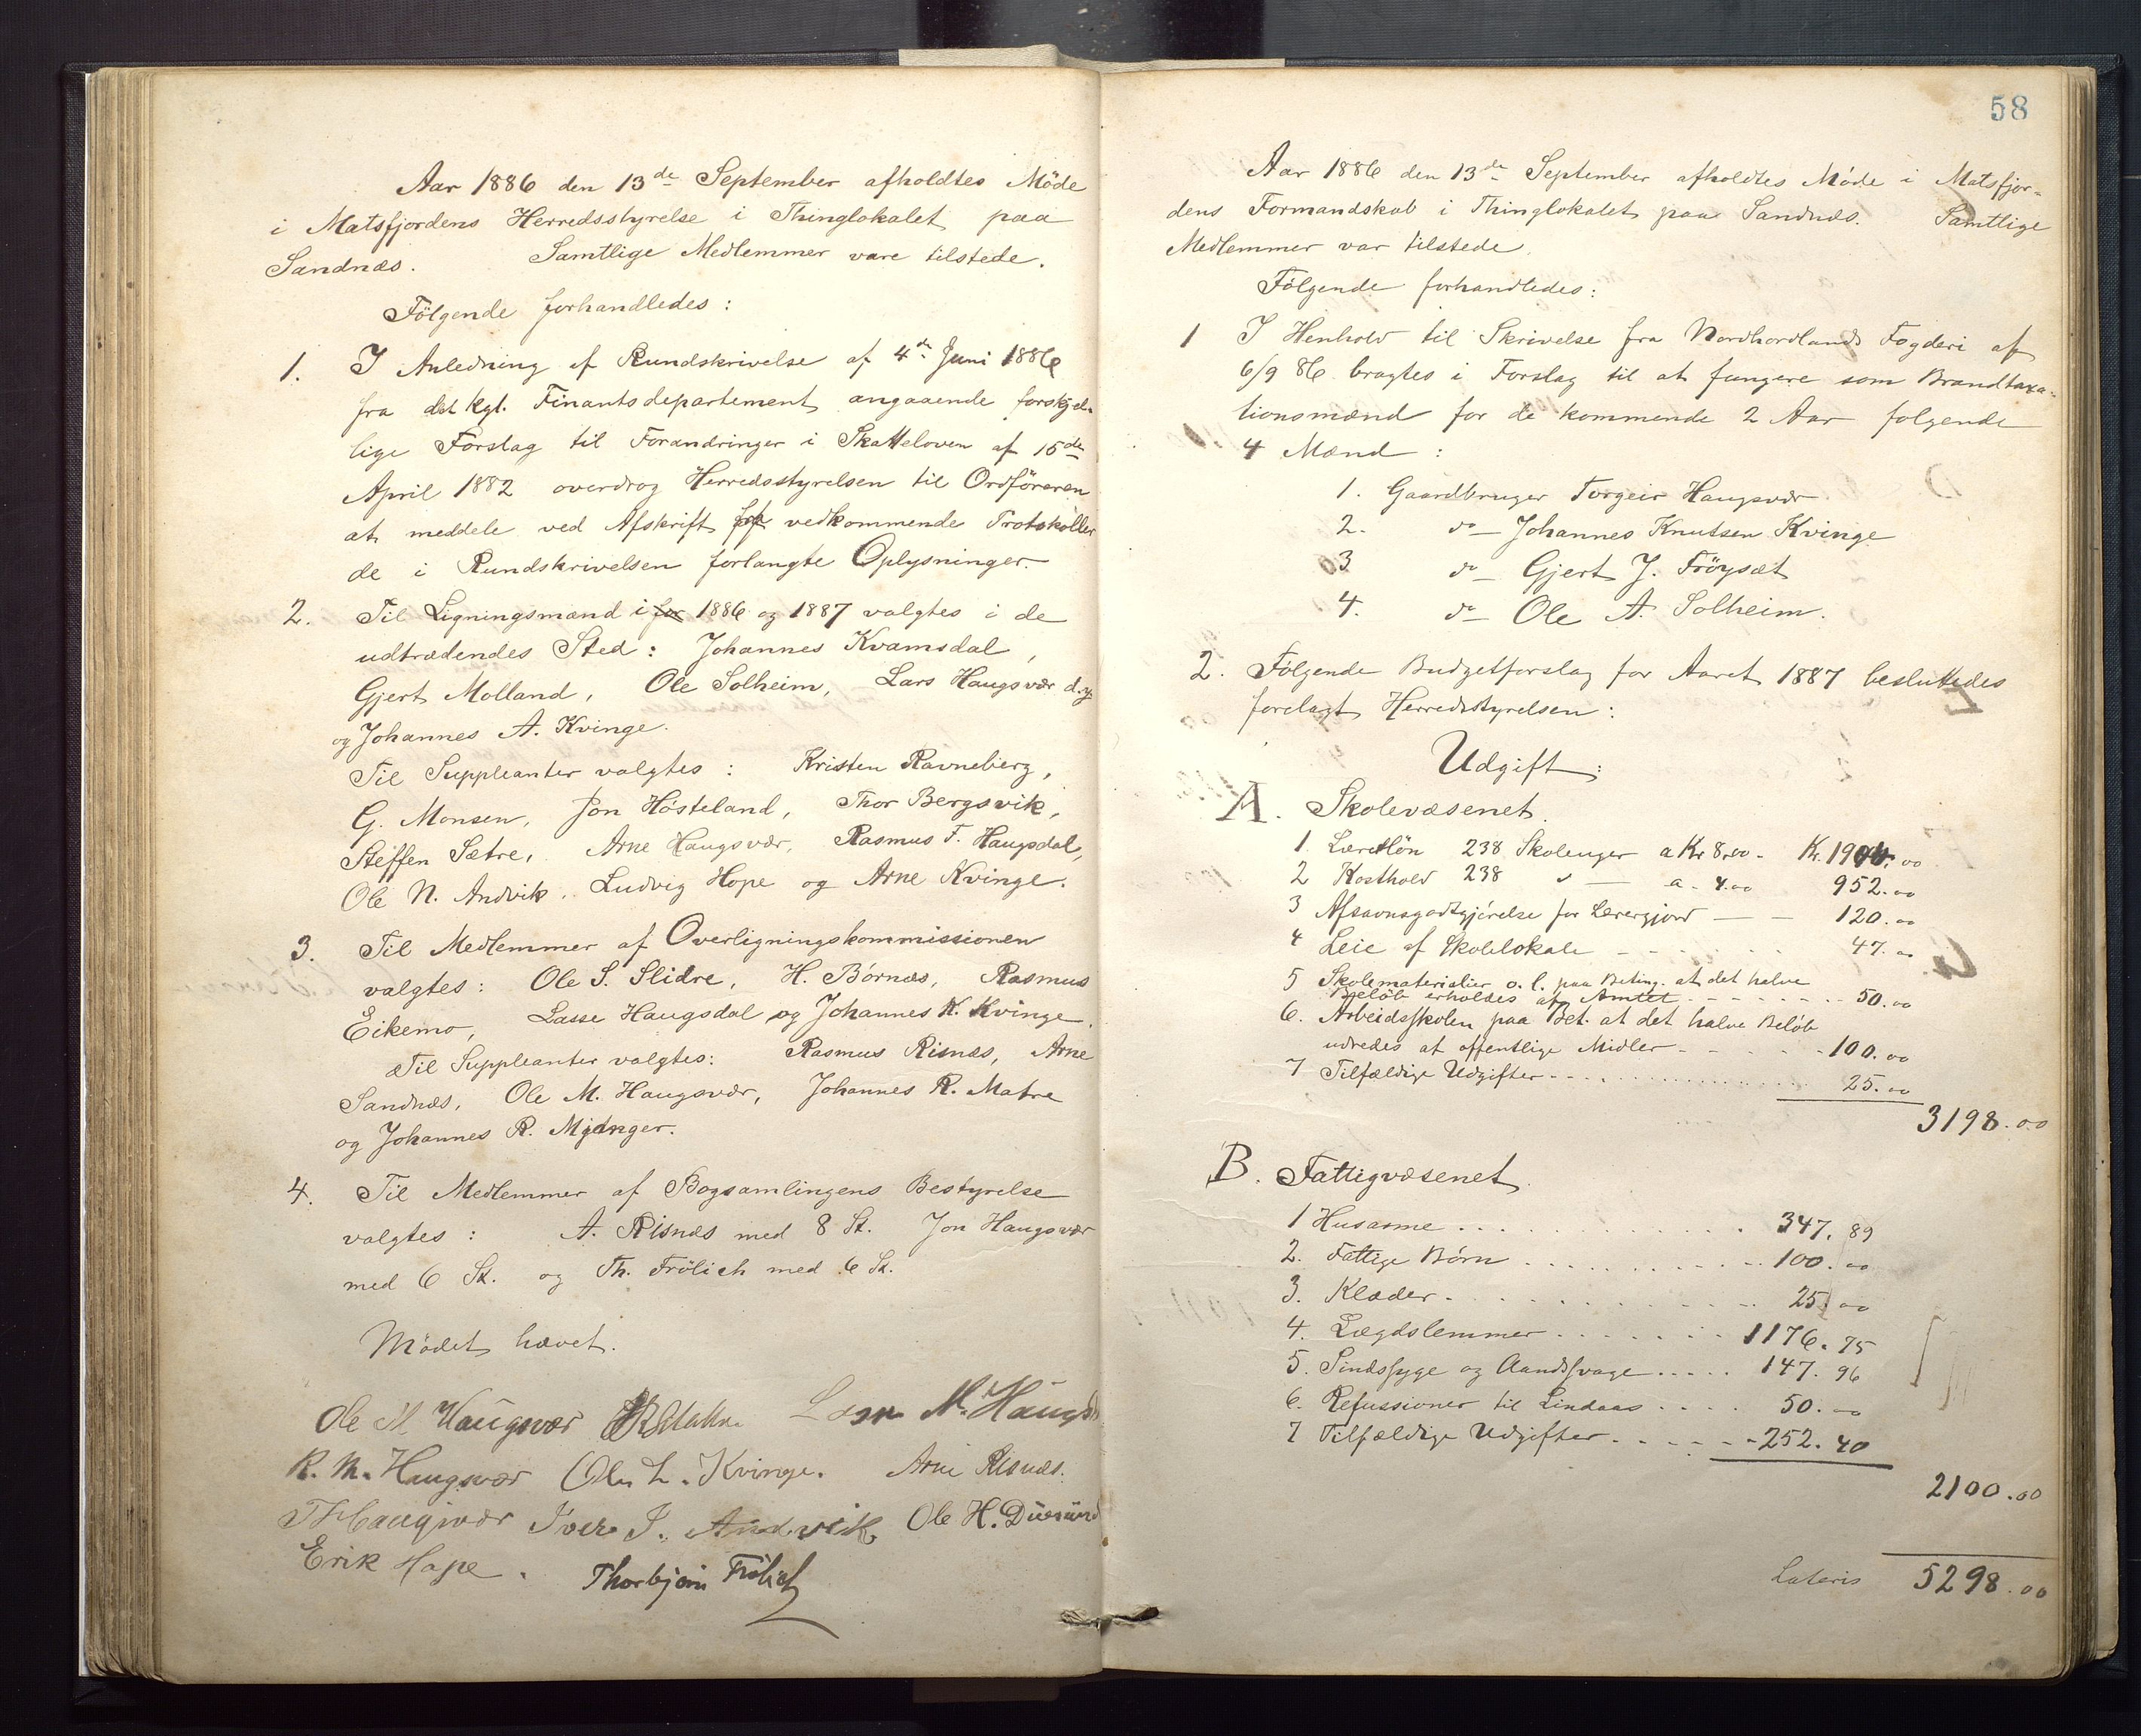 Aar 1886 den 13de September afholdtes Möde
i Matsfjordens Herredsstyrelse i Thinglokalet paa
Sandnæs. Samtlige Medlemmer vare tilstede.
Fölgende forhandledes:
1. I Anledning af Rundskrivelse af 4de Juni 1886
fra det kgl. Finantsdepartement angaaende forskjel-
lige Forslag til Forandringer i Skatteloven af 15de
April 1882 overdrog Herredsstyrelsen til Ordföreren
at meddele ved Afskrift af vedkommende Protokoller
de i Rundskrivelsen forlangte Oplysninger.
2. Til Ligningsmænd i for 1886 og 1887 valgtes i de
udtrædendes Sted: Johannes Kvamsdal,
Gjert Molland, Ole Solheim, Lars Haugsvær d.y.
og Johannes A. Kvinge.
Til Suppleanter valgtes: Kristen Ravneberg,
G. Monsen, Jon Hösteland, Thor Bergsvik,
Steffen Sætre, Arne Haugsvær, Rasmus F. Haugsdal,
Ole N. Andvik, Ludvig Hope og Arne Kvinge.
3. Til Medlemmer af Overligningskommissionen
valgtes: Ole S. Slidre, H. Börnæs, Rasmus
Eikemo, Lasse Haugsdal og Johannes K. Kvinge.
Til Suppleanter valgtes: Rasmus Risnæs, Arne
Sandnæs, Ole M. Haugsvær, Johannes R. Matre
og Johannes R. Mjanger.
4. Til Medlemmer af Bogsamlingens Bestyrelse
valgtes: A. Risnæs med 8 St. Jon Haugsvær
med 6 St. og Th. Frölich med 6 St.
Mödet hævet.
Ole M Haugsvær Lars M. Haugsv
R. M. Haugsvær Ole L. Kvinge. Arne Risnæs.
T Haugsvær Iver I. Andvik Ole H. Duesund
Erik Hope. Thorbjörn Frölich
58
Aar 1886 den 13de September afholdtes Möde i Matsfjor-
dens Formandskab i Thinglokalet paa Sandnæs. Samtlige
Medlemmer var tilstede.
Fölgende forhandledes:
1 I Henhold til Skrivelse fra Nordhordlands Fogderi af
6/9 86 bragtes i Forslag til at fungere som Brandtaxa-
tionsmænd for de kommende 2 Aar folgende
4 Mænd:
1. Gaardbruger Torgeir Haugsvær
2. do — Johannes Knutsen Kvinge
3 do — Gjert J. Fröysæt
4. do — Ole A. Solheim.
2. Folgende Budgetforslag for Aaret 1887 besluttedes
forelagt Herredsstyrelsen:
Udgift:
A. Skolevæsenet.
1. Lærerlön 238 Skoleuger a Kr 8,00 - Kr. 1904.00
2 Kosthold 238 " — a - 4.00 952.00
3 Afsavnsgodtgjörelse for Lærerjord — — 120.00
4 Leie af Skolelokale - - - - - 47.00
5 Skolematerialier o. l. paa Beting. at det halve
Belöb erholdes af Amtet - - - - - - 50.00
6. Arbeidsskolen paa Bet. at det halve Belöb
udredes af offentlige Midler - - - - - 100.00
7 Tilfældige Udgifter - - - 25.00
3198.00
B. Fattigvæsenet.
1 Husarme . . . 347.89
2. Fattige Börn . . . 100.00
3. Klæder . . . 25.00
4. Lægdslemmer . . . 1176.75
5. Sindssyge og Aandssvage . . . 147.96
6. Refussioner til Lindaas . . . 50.00
7 Tilfældige Udgifter . . . 252.40
2100.00
Lateris 5298.00